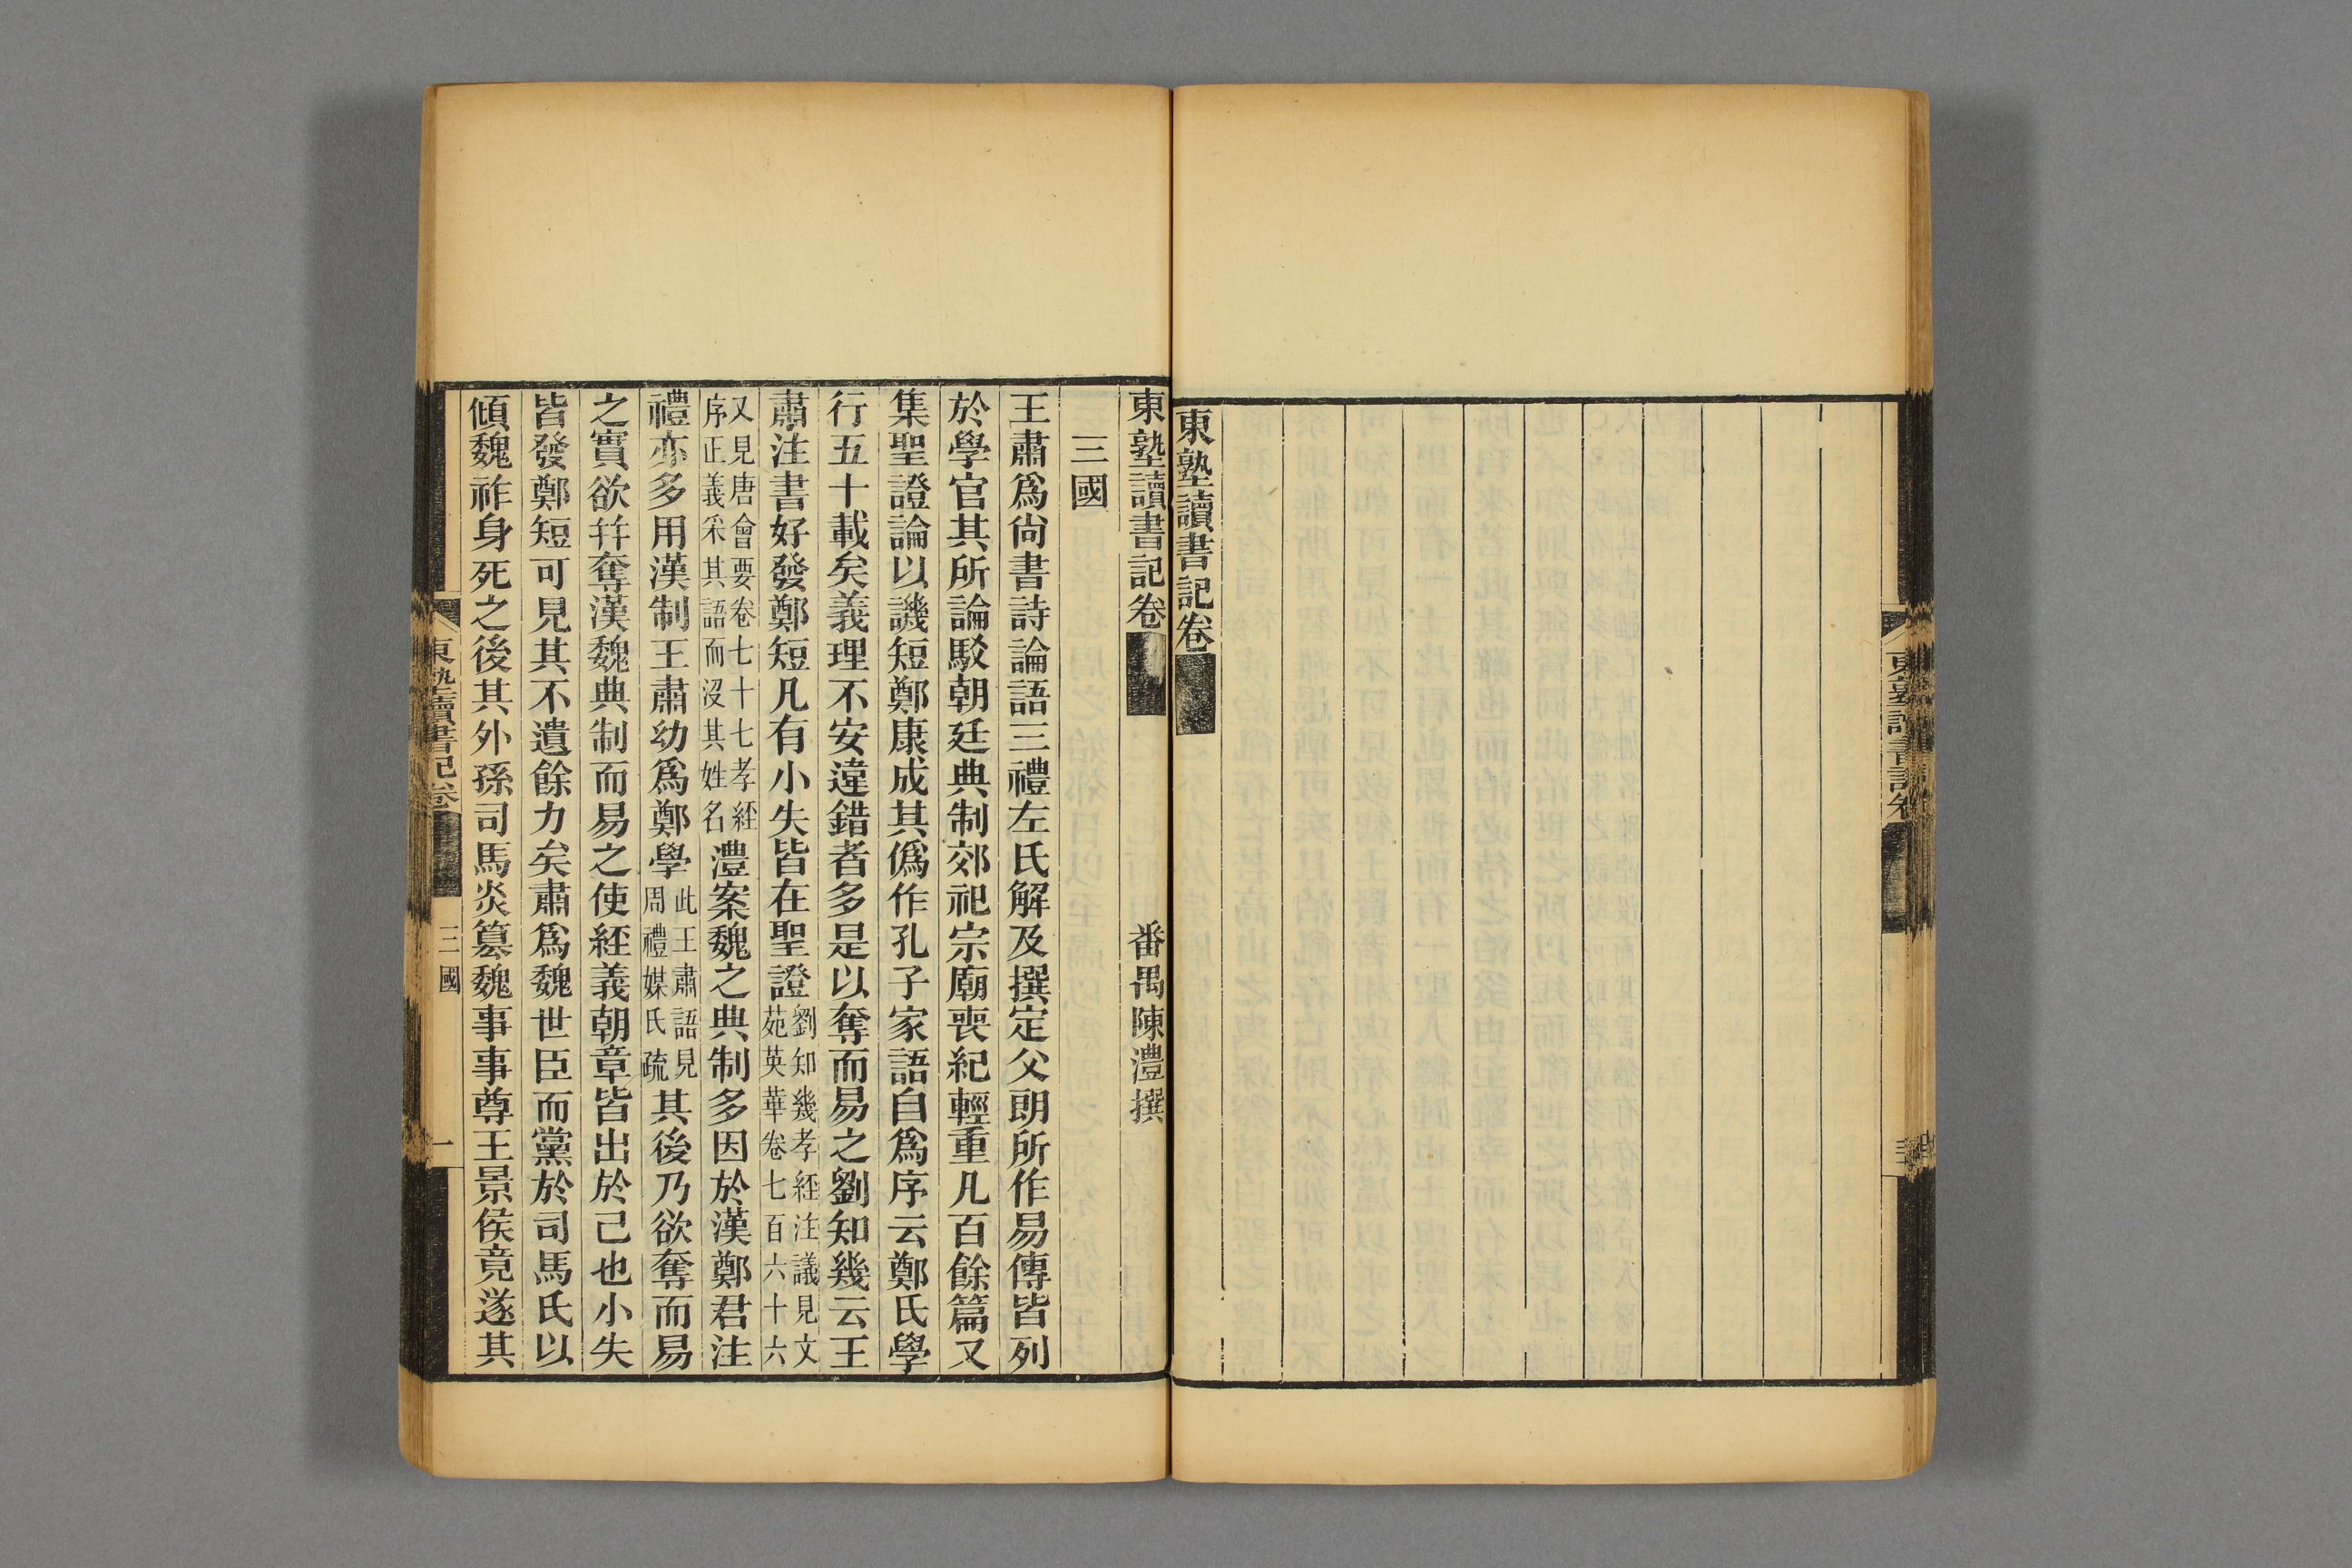 東塾讀書記卷
東塾讀書記卷
東塾讀書記卷
番禺陳澧撰
三國
王肅爲尙書詩論語三禮左氏解及撰定父朗所作易傳皆列
於學官其所論駁朝廷典制郊祀宗廟喪紀輕重凡百餘篇又
集聖證論以譏短鄭康成其僞作孔子家語自爲序云鄭氏學
行五十載矣義理不安違錯者多是以奪而易之劉知幾云王
肅注書好發鄭短凡有小失皆在聖證劉知幾孝經注議見文苑英華卷七百六十六
又見唐會要卷七十七孝經序正義采其語而沒其姓名澧案魏之典制多因於漢鄭君注
禮亦多用漢制王肅幼爲鄭學此王肅語見周禮媒氏疏其後乃欲奪而易
之實欲幷奪漢魏典制而易之使經義朝章皆出於己也小失
皆發鄭短可見其不遺餘力矣肅爲魏世臣而黨於司馬氏以
傾魏祚身死之後其外孫司馬炎篡魏事事尊王景侯竟遂其
東塾讀書記卷
三國
一